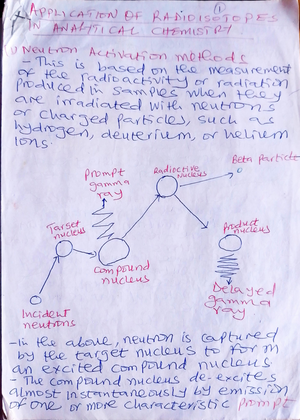 ①
* APPLICATION OF RADIOISOTOPES
IN ANALYTICAL CHEMISTRY
1) Neutron Activation methods
- This is based on the measurement
of the radioactivity or radiation
produced in samples when they
are irradiated with neutrons
or charged particles, such as
hydrogen, deuterium, or helium
ions.
Prompt
gamma
ray
Radioactive
nucleus
Beta particle
Target
nucleus
Product
nucleus
Compound
nucleus
Incident
neutrons
Delayed
gamma
ray
- In the above, neutron is captured
by the target nucleus to form
an excited compound nucleus
- The compound nucleus de-excites
almost instantaneously by emission
of one or more characteristic prompt